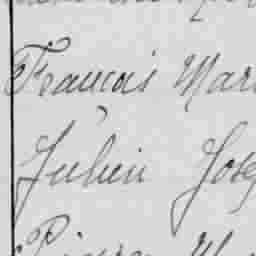 Francois Mar
Julien Jos
Pierre